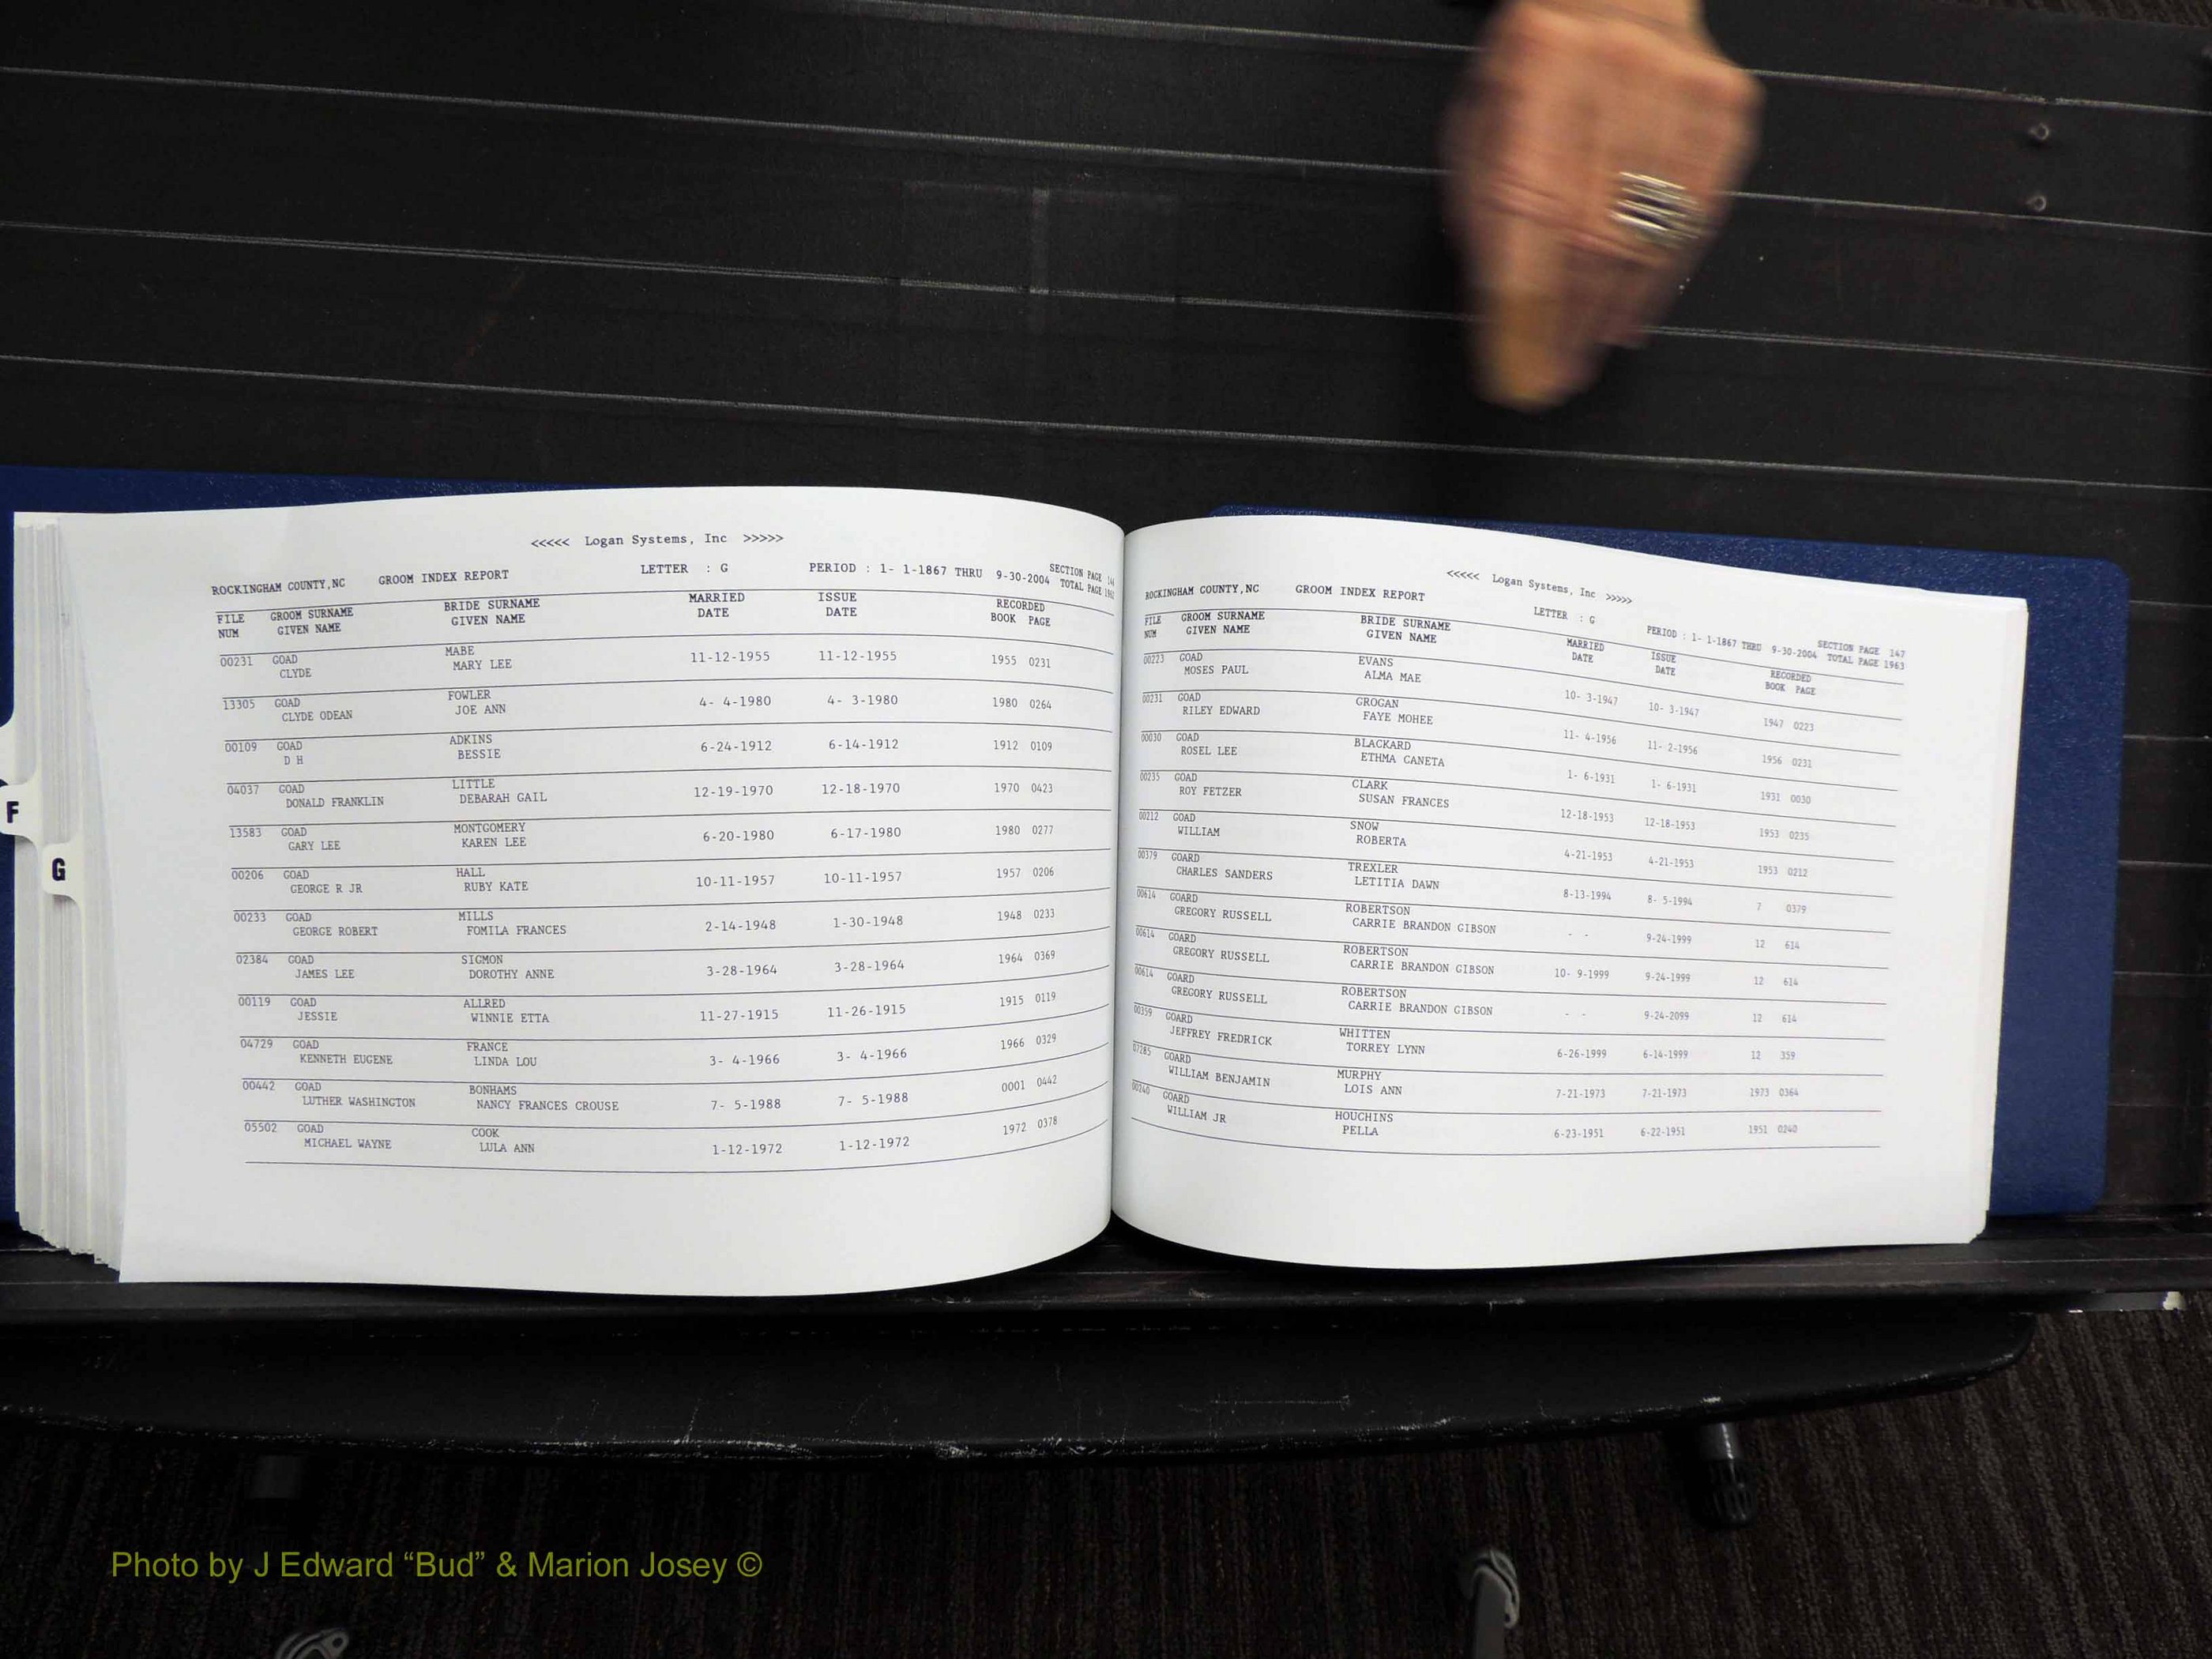 <<<<< Logan Systems, Inc >>>>>
ROCKINGHAM COUNTY,NC GROOM INDEX REPORT LETTER : G PERIOD : 1- 1-1867 THRU 9-30-2004 SECTION PAGE 146
TOTAL PAGE 1962
FILE GROOM SURNAME BRIDE SURNAME MARRIED ISSUE RECORDED
NUM GIVEN NAME GIVEN NAME DATE DATE BOOK PAGE
00231 GOAD MABE 11-12-1955 11-12-1955 1955 0231
CLYDE MARY LEE
13305 GOAD FOWLER 4- 4-1980 4- 3-1980 1980 0264
CLYDE ODEAN JOE ANN
00109 GOAD ADKINS 6-24-1912 6-14-1912 1912 0109
D H BESSIE
04037 GOAD LITTLE 12-19-1970 12-18-1970 1970 0423
DONALD FRANKLIN DEBARAH GAIL
13583 GOAD MONTGOMERY 6-20-1980 6-17-1980 1980 0277
GARY LEE KAREN LEE
00206 GOAD HALL 10-11-1957 10-11-1957 1957 0206
GEORGE R JR RUBY KATE
00233 GOAD MILLS 2-14-1948 1-30-1948 1948 0233
GEORGE ROBERT FOMILA FRANCES
02384 GOAD SIGMON 3-28-1964 3-28-1964 1964 0369
JAMES LEE DOROTHY ANNE
00119 GOAD ALLRED 11-27-1915 11-26-1915 1915 0119
JESSIE WINNIE ETTA
04729 GOAD FRANCE 3- 4-1966 3- 4-1966 1966 0329
KENNETH EUGENE LINDA LOU
00442 GOAD BONHAMS 7- 5-1988 7- 5-1988 0001 0442
LUTHER WASHINGTON NANCY FRANCES CROUSE
05502 GOAD COOK 1-12-1972 1-12-1972 1972 0378
MICHAEL WAYNE LULA ANN
<<<<< Logan Systems, Inc >>>>>
ROCKINGHAM COUNTY,NC GROOM INDEX REPORT LETTER : G PERIOD : 1- 1-1867 THRU 9-30-2004 SECTION PAGE 147
TOTAL PAGE 1963
FILE GROOM SURNAME BRIDE SURNAME MARRIED ISSUE RECORDED
NUM GIVEN NAME GIVEN NAME DATE DATE BOOK PAGE
00223 GOAD EVANS 10- 3-1947 10- 3-1947 1947 0223
MOSES PAUL ALMA MAE
00231 GOAD GROGAN 11- 4-1956 11- 2-1956 1956 0231
RILEY EDWARD FAYE MOHEE
00030 GOAD BLACKARD 1- 6-1931 1- 6-1931 1931 0030
ROSEL LEE ETHMA CANETA
00235 GOAD CLARK 12-18-1953 12-18-1953 1953 0235
ROY FETZER SUSAN FRANCES
00212 GOAD SNOW 4-21-1953 4-21-1953 1953 0212
WILLIAM ROBERTA
00379 GOARD TREXLER 8-13-1994 8- 5-1994 7 0379
CHARLES SANDERS LETITIA DAWN
00614 GOARD ROBERTSON - - 9-24-1999 12 614
GREGORY RUSSELL CARRIE BRANDON GIBSON
00614 GOARD ROBERTSON 10- 9-1999 9-24-1999 12 614
GREGORY RUSSELL CARRIE BRANDON GIBSON
00614 GOARD ROBERTSON - - 9-24-2099 12 614
GREGORY RUSSELL CARRIE BRANDON GIBSON
00359 GOARD WHITTEN 6-26-1999 6-14-1999 12 359
JEFFREY FREDRICK TORREY LYNN
07285 GOARD MURPHY 7-21-1973 7-21-1973 1973 0364
WILLIAM BENJAMIN LOIS ANN
00240 GOARD HOUCHINS 6-23-1951 6-22-1951 1951 0240
WILLIAM JR PELLA
F
G
Photo by J Edward “Bud” & Marion Josey ©